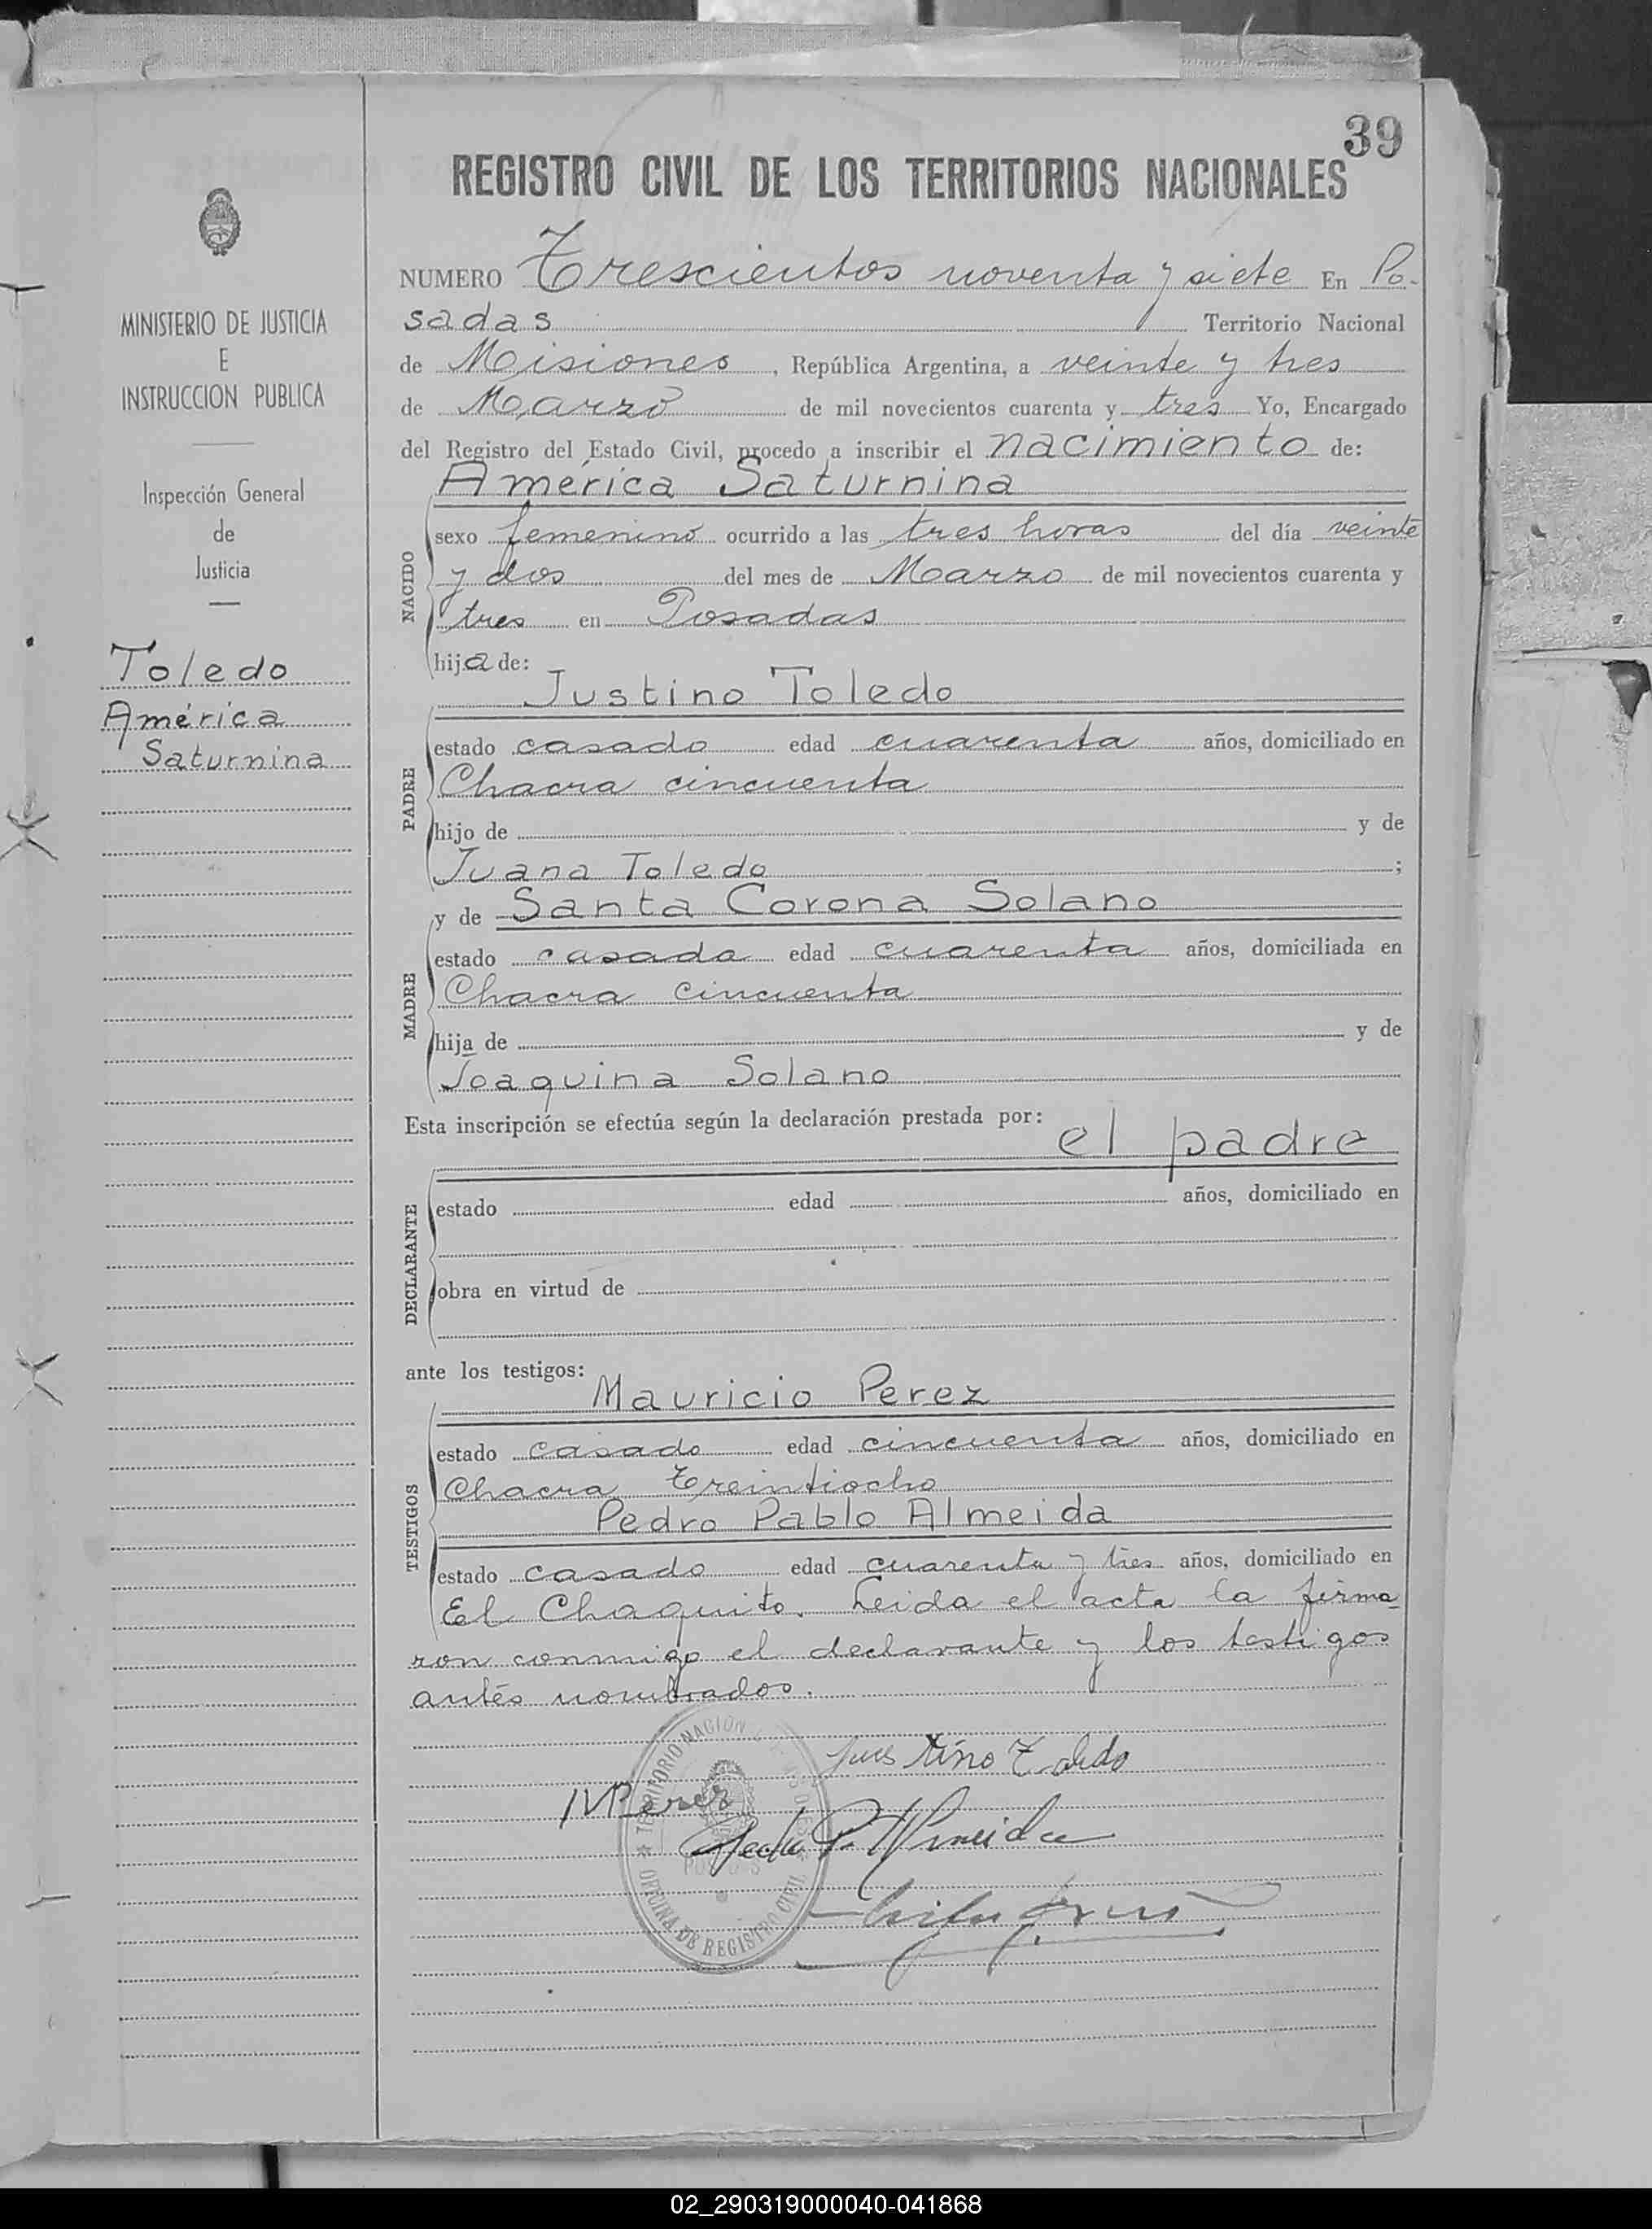 39
REGISTRO CIVIL DE LOS TERRITORIOS NACIONALES
MINISTERIO DE JUSTICIA
E
INSTRUCCION PUBLICA
Inspección General
de
Justicia
Toledo
América
Saturnina
NUMERO Trescientos noventa y siete En Po-
sadas Territorio Nacional
de Misiones, República Argentina, a veinte y tres
de Marzo de mil novecientos cuarenta y tres Yo, Encargado
del Registro del Estado Civil, procedo a inscribir el nacimiento de:
América Saturnina
NACIDO
sexo femenino ocurrido a las tres horas del día veinte
y dos del mes de Marzo de mil novecientos cuarenta y
tres en Posadas
hija de:
Justino Toledo
PADRE
estado casado edad cuarenta años, domiciliado en
Chacra cincuenta
hijo de y de
Juana Toledo ;
y de Santa Corona Solano
MADRE
estado casada edad cuarenta años, domiciliada en
Chacra cincuenta
hija de y de
Joaquina Solano
Esta inscripción se efectúa según la declaración prestada por:
el padre
DECLARANTE
estado edad años, domiciliado en
obra en virtud de
ante los testigos:
Mauricio Perez
TESTIGOS
estado casado edad cincuenta años, domiciliado en
Chacra Treintiocho
Pedro Pablo Almeida
estado casado edad cuarenta y tres años, domiciliado en
El Chaquito. Leida el acta la firma
ron conmigo el declarante y los testigos
antés nombrados.
TERRITORIO NACIONAL
OFICINA DE REGISTRO CIVIL
M Perez
Pedro P. Almeida
02_290319000040-041868